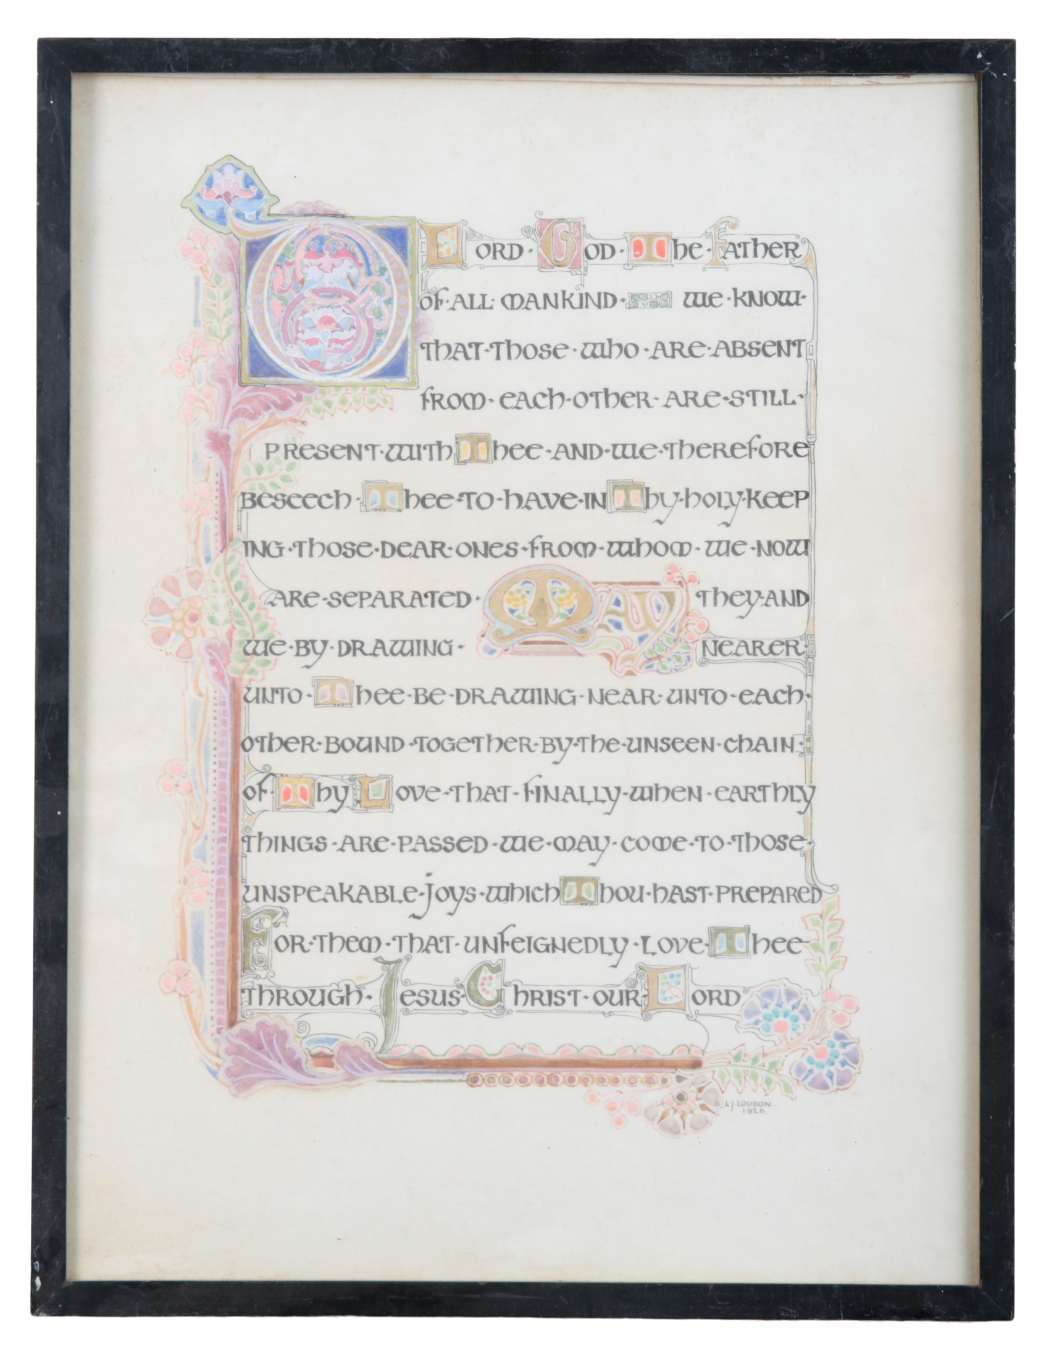 O LORD · GOD · The · FATHER
OF · ALL · MANKIND · WE · KNOW ·
THAT · THOSE · WHO · ARE · ABSENT
FROM · EACH · OTHER · ARE · STILL ·
PRESENT · WITH THEE · AND · WE · THEREFORE
BESEECH · THEE · TO · HAVE · IN THY · HOLY · KEEP
ING · THOSE · DEAR · ONES · FROM · WHOM · WE · NOW
ARE · SEPARATED · MAY THEY · AND
WE · BY · DRAWING · NEARER
UNTO · THEE · BE · DRAWING · NEAR · UNTO · EACH ·
OTHER · BOUND · TOGETHER · BY · THE · UNSEEN · CHAIN ·
OF · THY LOVE · THAT · FINALLY · WHEN · EARTHLY
THINGS · ARE · PASSED · WE · MAY · COME · TO · THOSE ·
UNSPEAKABLE · JOYS · WHICH THOU · HAST · PREPARED
FOR · THEM · THAT · UNFEIGNEDLY · LOVE · THEE
THROUGH · JESUS · CHRIST · OUR LORD
LJ LOUDON.
1926.